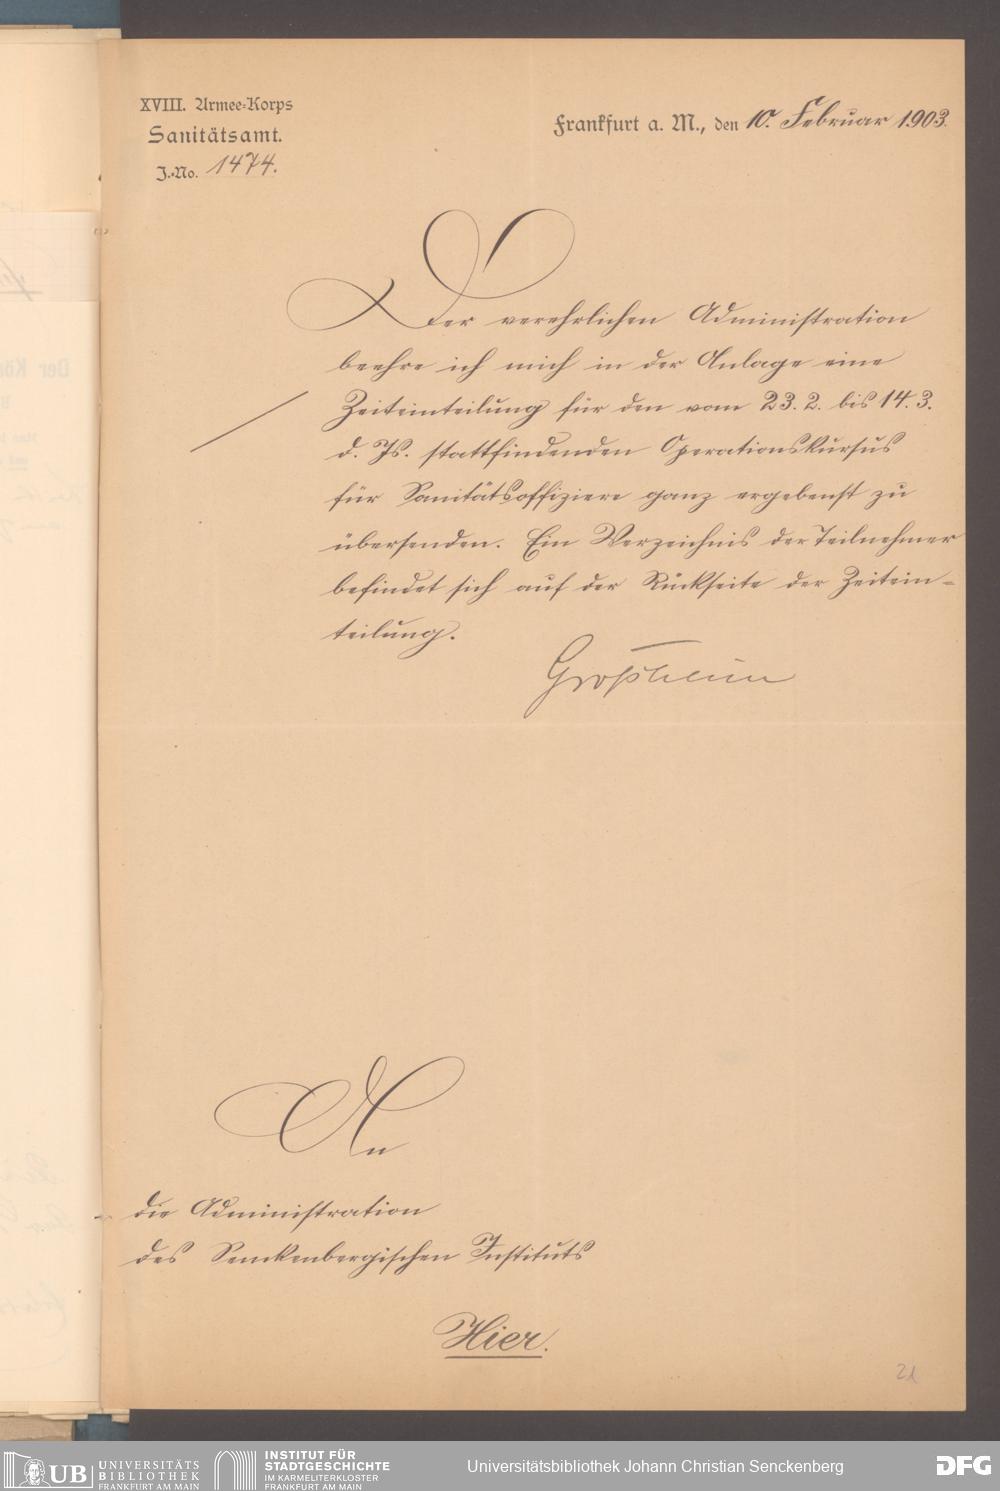 XVIII. Armee-Korps
Sanitätsamt.
J.-No. 1474.
Frankfurt a. M., den 10. Februar 1903.
Der verehrlichen Administration
beehre ich mich in der Anlage eine
Zeiteinteilung für den vom 23. 2. bis 14. 3.
d. Js. stattfindenden Operationskursus
für Sanitätsoffiziere ganz ergebenst zu
übersenden. Ein Verzeichnis der Teilnehmer
befindet sich auf der Rückseite der Zeitein-
teilung.
Großheim
An
die Administration
des Senckenbergischen Instituts
Hier.
21
UB UNIVERSITÄTS
BIBLIOTHEK
FRANKFURT AM MAIN
INSTITUT FÜR
STADTGESCHICHTE
IM KARMELITERKLOSTER
FRANKFURT AM MAIN
Universitätsbibliothek Johann Christian Senckenberg
DFG